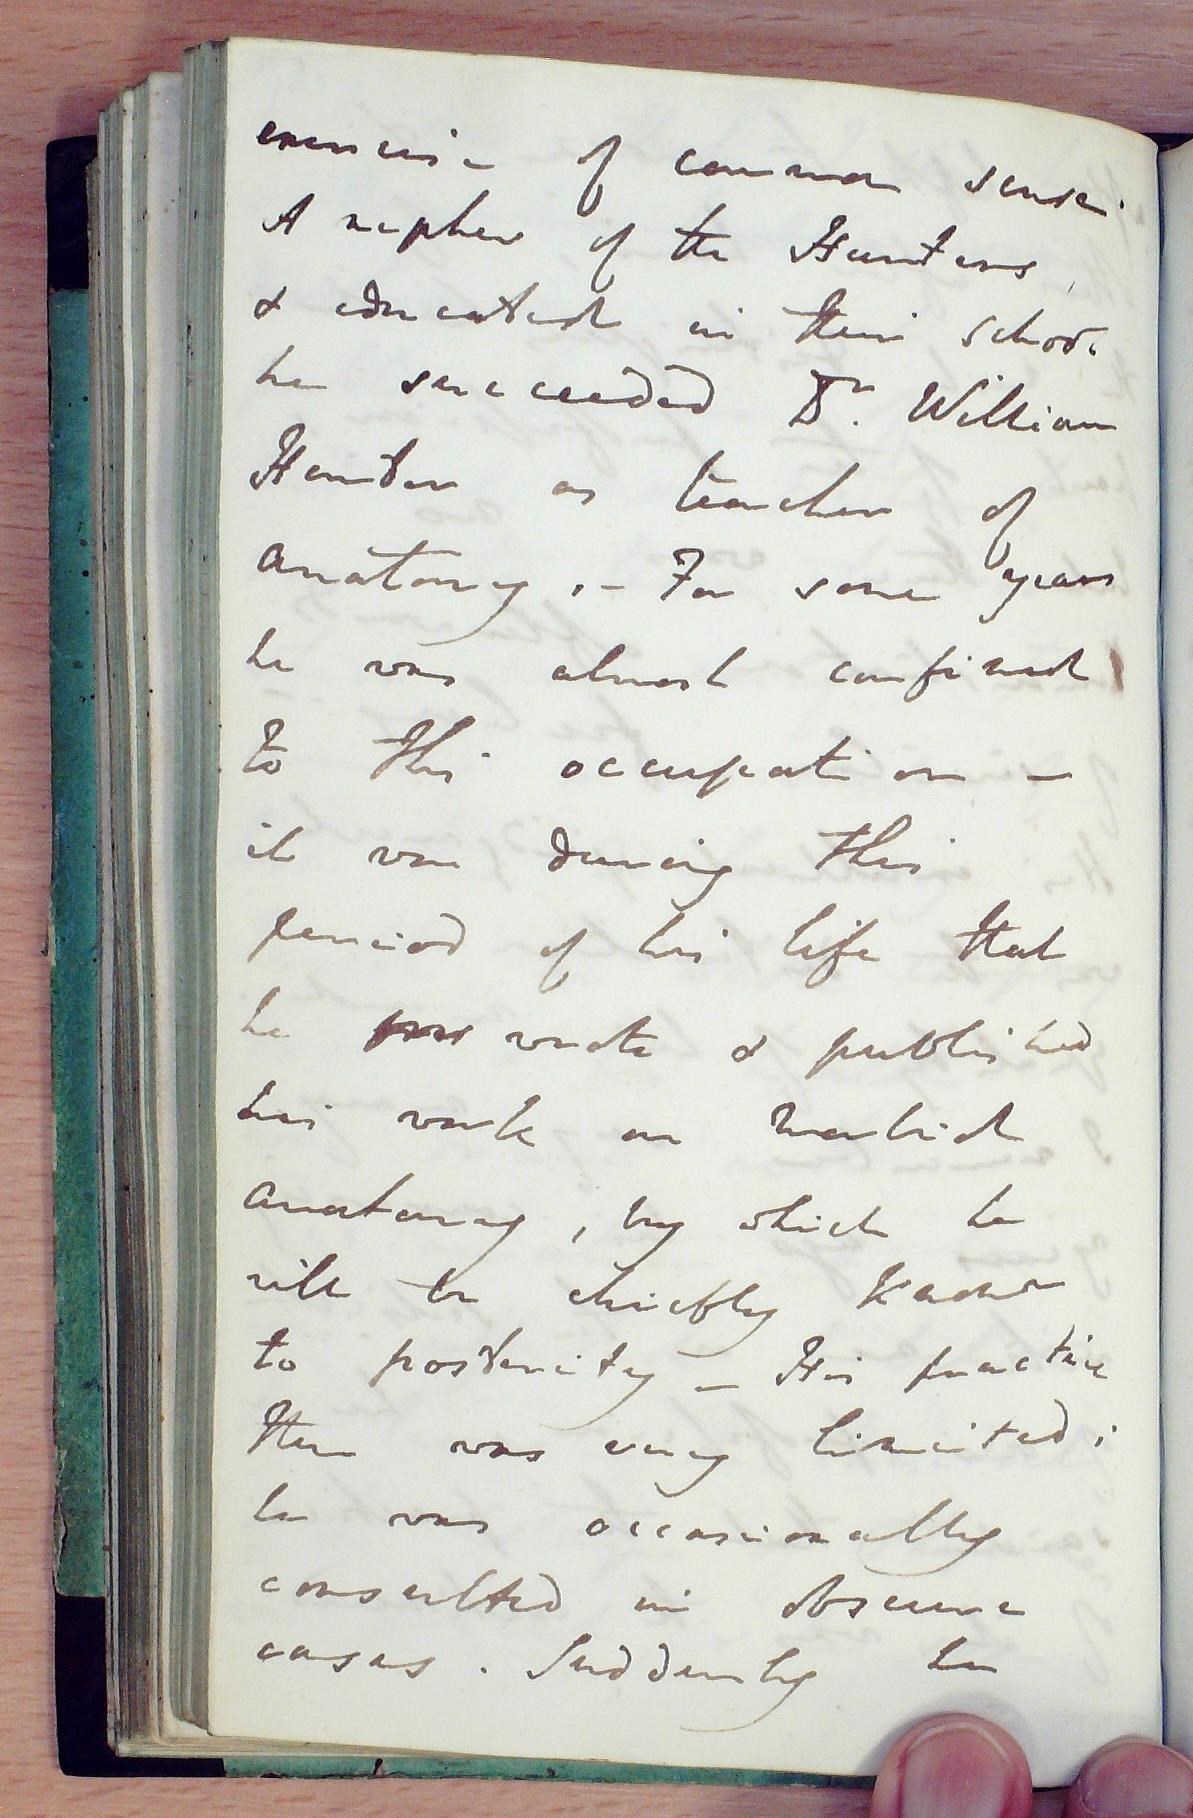 exercise of common sense.
A nephew of the Hunters,
& educated in their school
he succeeded Dr. William
Hunter as teacher of
anatomy. – For some years
he was almost confined
to this occupation –
it was during this
period of his life that
he wrote & published
his work on morbid
anatomy, by which he
will be chiefly known
to posterity – His practice
then was very limited;
he was occasionally
consulted in obscure
cases. Suddenly he